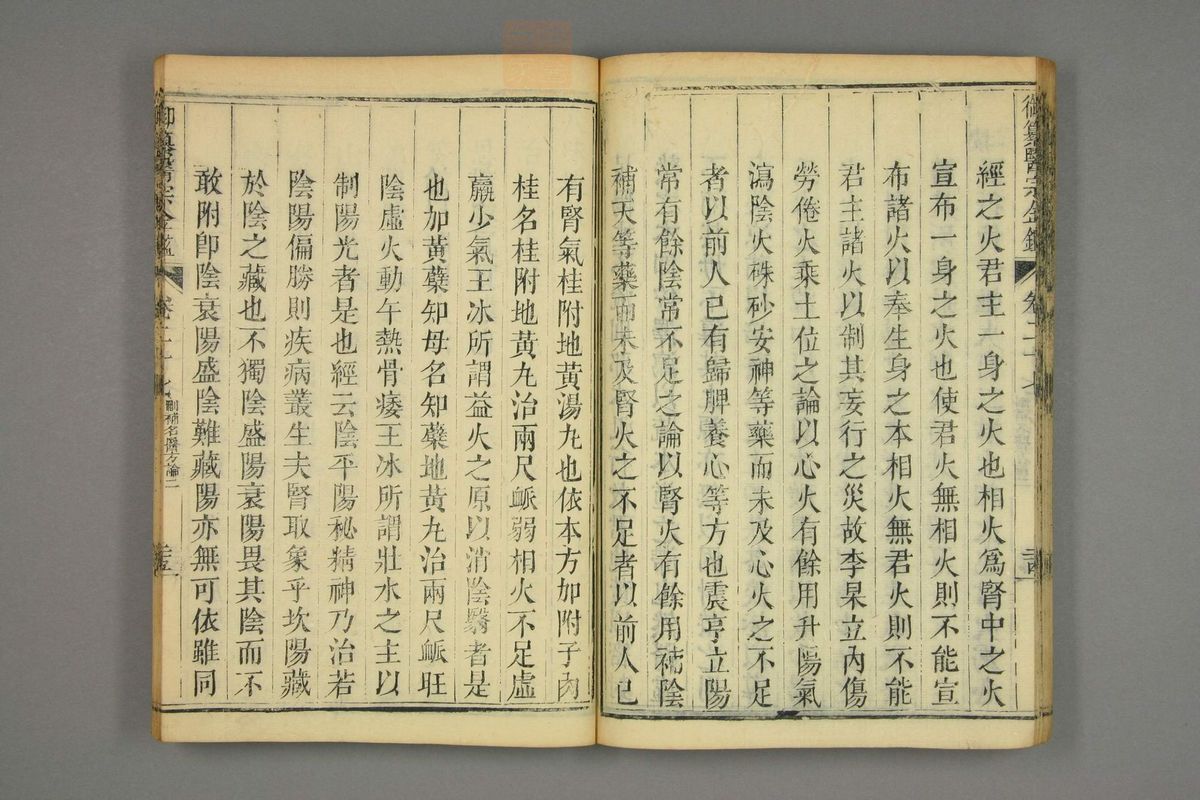 御纂醫宗金鑑 卷二十七
經之火君主一身之火也相火爲腎中之火
宣布一身之火也使君火無相火則不能宣
布諸火以奉生身之本相火無君火則不能
君主諸火以制其妄行之災故李杲立內傷
勞倦火乘土位之論以心火有餘用升陽氣
瀉陰火硃砂安神等藥而未及心火之不足
者以前人已有歸脾養心等方也震亨立陽
常有餘陰常不足之論以腎火有餘用補陰
補天等藥而未及腎火之不足者以前人已
有腎氣桂附地黄湯九也依本方加附子肉
桂名桂附地黄九治兩尺衇弱相火不足虛
羸少氣王冰所謂益火之原以消陰翳者是
也加黄蘗知母名知蘗地黄九治兩尺衇旺
陰虛火動午熱骨痿王冰所謂壯水之主以
制陽光者是也經云陰平陽秘精神乃治若
陰陽偏勝則疾病叢生夫腎取象乎坎陽藏
於陰之藏也不獨陰盛陽衰陽畏其陰而不
敢附卽陰衰陽盛陰難藏陽亦無可依雖同
御纂醫宗金鑑 卷二十七 刪補名醫方論二